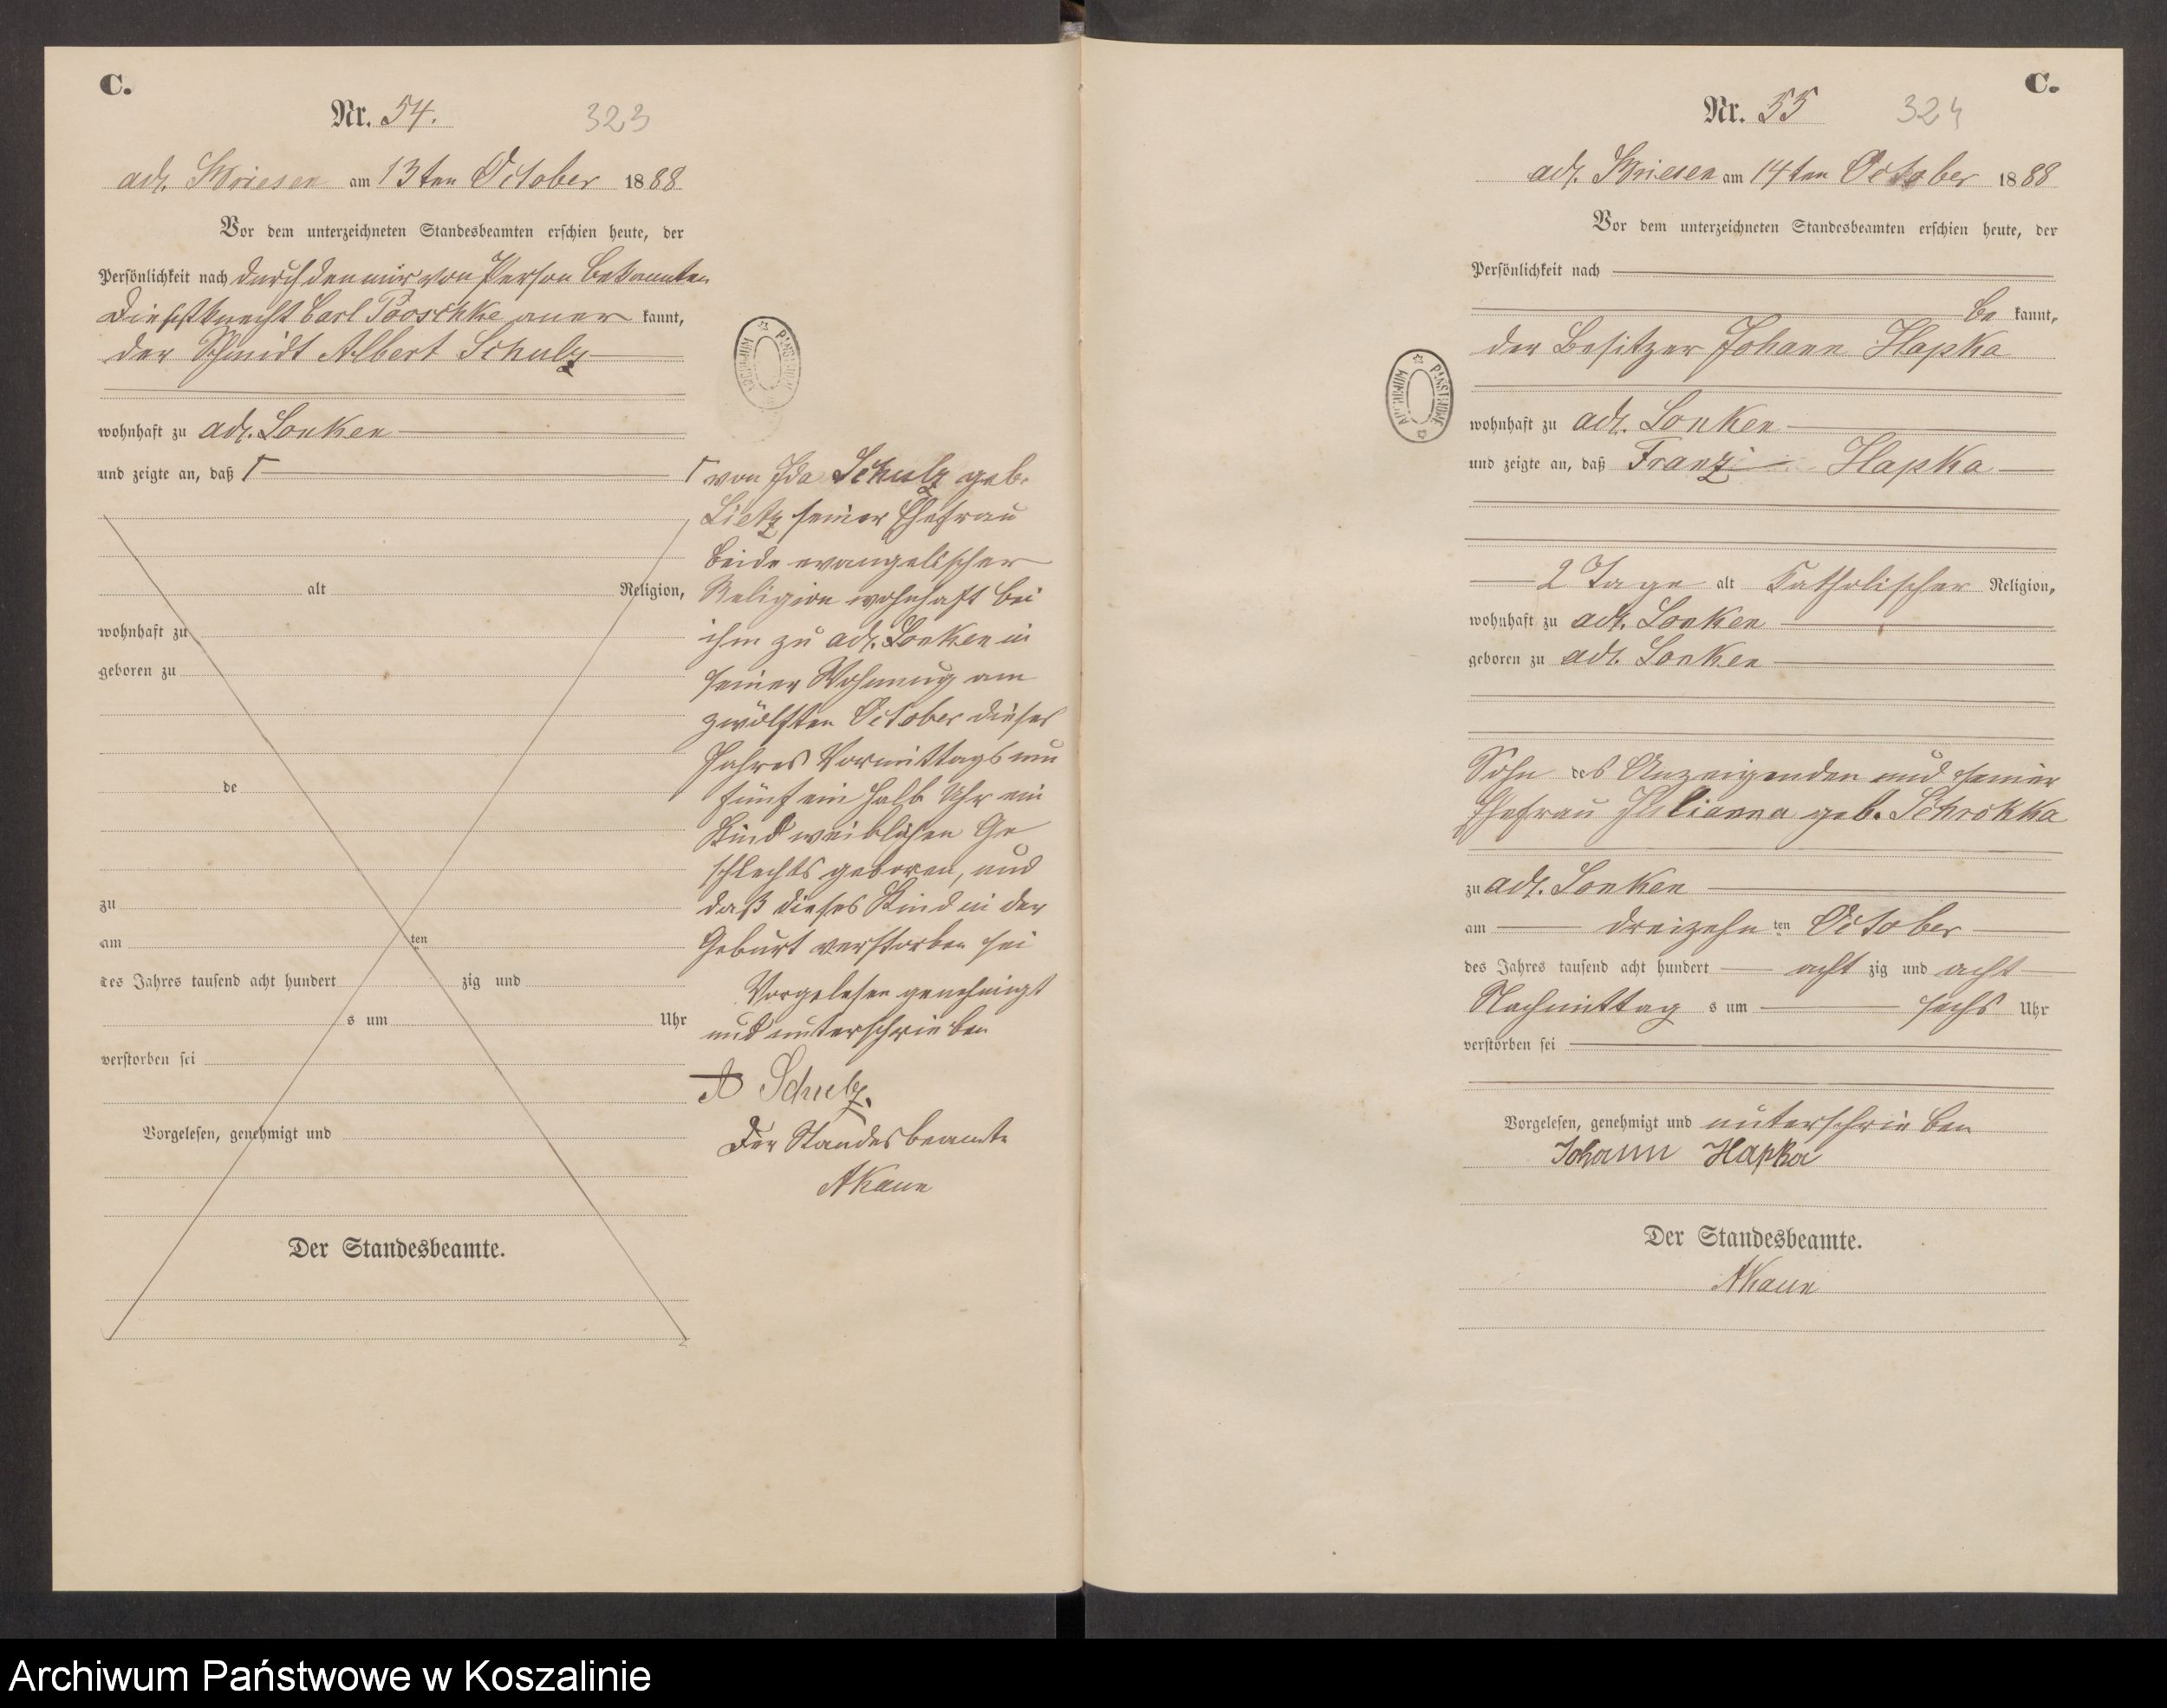 C.
Nr. 54. 323
adl. Briesen am 13ten October 1888
Vor dem unterzeichneten Standesbeamten erschien heute, der
Persönlichkeit nach durch den mir von Person bekannten
Dienstknecht Carl aner kannt,
der Schmidt Albert Schulz
wohnhaft zu adl. Lonken
und zeigte an, daß Γ
alt Religion,
wohnhaft zu
geboren zu
de
zu
am ten
des Jahres tausend acht hundert zig und
s um Uhr
verstorben sei
Vorgelesen, genehmigt und
Der Standesbeamte.
Γ von Ida Schulz geb.
Lietz seiner Ehefrau
beide evangelischer
Religion wohnhaft bei
ihm zu adl. Lonken in
seiner Wohnung am
zwölften October dieses
Jahres Vormittags um
fünf ein halb Uhr ein
Kind weiblichen Ge
schlechts geboren, und
daß dieses Kind in der
Geburt verstorben sei
Vorgelesen genehmigt
und unterschrieben
A Schulz.
Der Standesbeamte
ARCHIWUM PAŃSTWOWE
C.
Nr. 55 324
adl. Briesen am 14ten October 1888
Vor dem unterzeichneten Standesbeamten erschien heute, der
Persönlichkeit nach
be kannt,
der Besitzer Johann Hapka
wohnhaft zu adl. Lonken
und zeigte an, daß Franz Hapka
2 Tage alt Katholischer Religion,
wohnhaft zu adl. Lonken
geboren zu adl. Lonken
Sohn des Anzeigenden und seiner
Ehefrau Julianna geb. Schrokka
zu adl. Lonken
am dreizehn ten October
des Jahres tausend acht hundert acht zig und acht
Nachmittag s um sechs Uhr
verstorben sei
Vorgelesen, genehmigt und unterschrieben
Johann Hapka
Der Standesbeamte.
ARCHIWUM PAŃSTWOWE
Archiwum Państwowe w Koszalinie